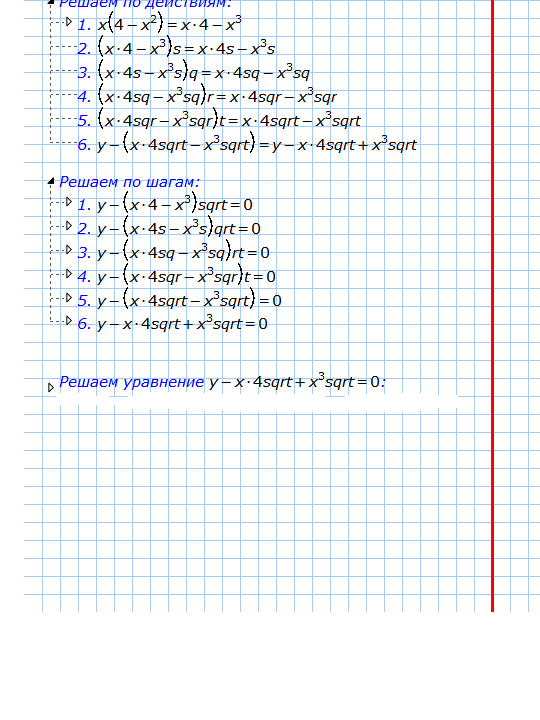 Решаем по действиям:
1. x(4−x²)=x·4−x³
2. (x·4−x³)s=x·4s−x³s
3. (x·4s−x³s)q=x·4sq−x³sq
4. (x·4sq−x³sq)r=x·4sqr−x³sqr
5. (x·4sqr−x³sqr)t=x·4sqrt−x³sqrt
6. y−(x·4sqrt−x³sqrt)=y−x·4sqrt+x³sqrt
Решаем по шагам:
1. y−(x·4−x³)sqrt=0
2. y−(x·4s−x³s)qrt=0
3. y−(x·4sq−x³sq)rt=0
4. y−(x·4sqr−x³sqr)t=0
5. y−(x·4sqrt−x³sqrt)=0
6. y−x·4sqrt+x³sqrt=0
Решаем уравнение y−x·4sqrt+x³sqrt=0: